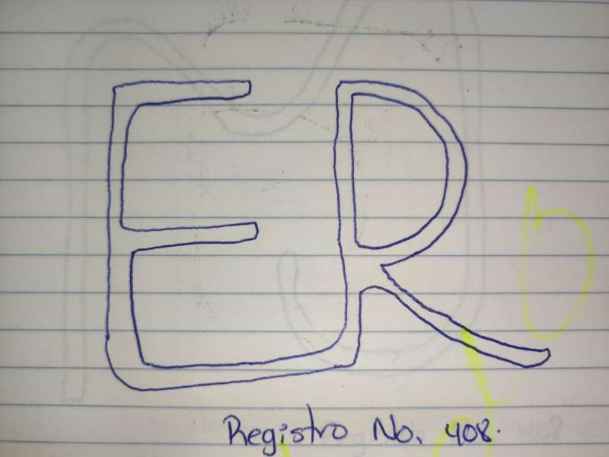 ER
Registro No. 408.